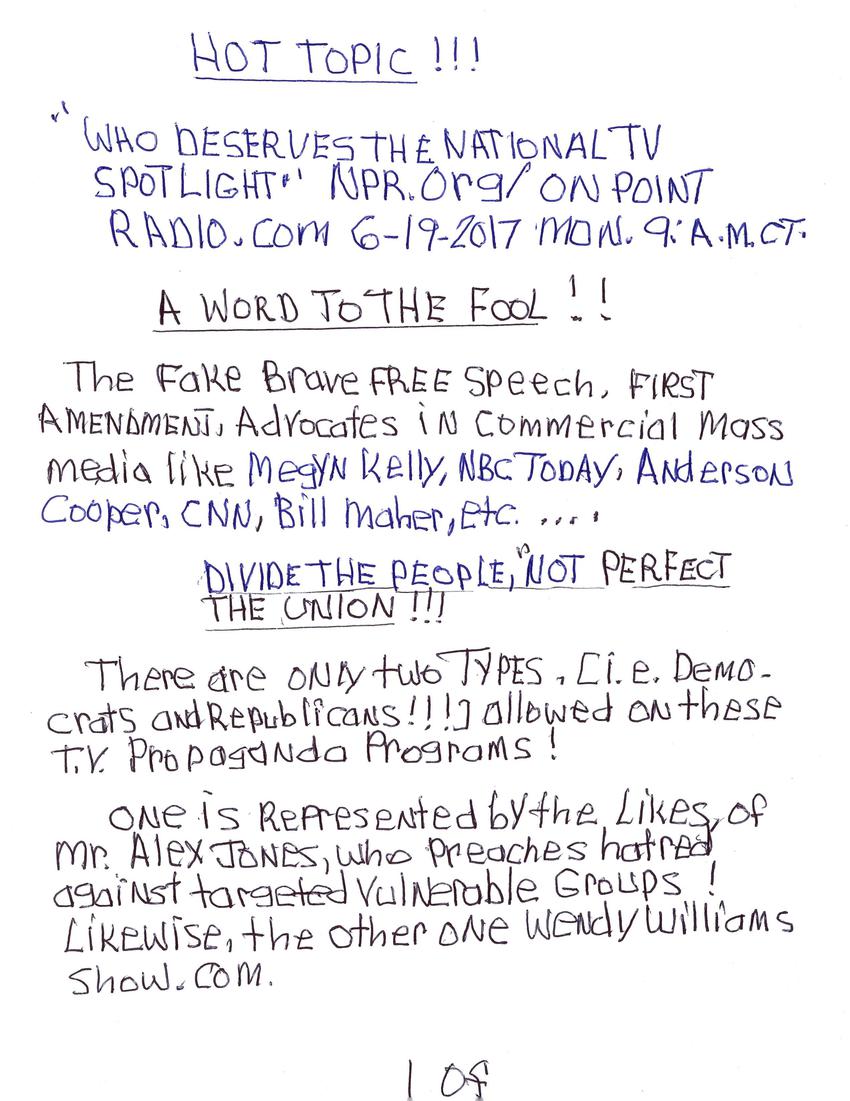 HOT TOPIC !!!
"WHO DESERVES THE NATIONAL TV
SPOTLIGHT" NPR.Org/ ON POINT
RADIO.COM 6-19-2017 MON. 9: A.M.CT.
A WORD TO THE FOOL !!
The Fake Brave FREE Speech, FIRST
AMENDMENT, Advocates iN Commercial Mass
media like MegyN Kelly, NBC TODAY, ANderson
Cooper, CNN, Bill Maher, etc. ....
DIVIDE THE PEOPLE, "NOT PERFECT
THE UNION !!!
There are ONly two TYPES, [i.e. Demo-
crats and Republicans!!!] allowed ON these
T.V. Propaganda Programs !
ONe is Represented by the Likes, of
Mr. Alex JONES, who Preaches hatred
against targeted Vulnerable Groups !
Likewise, the other ONe Wendy Williams
Show.COM.
1 Of